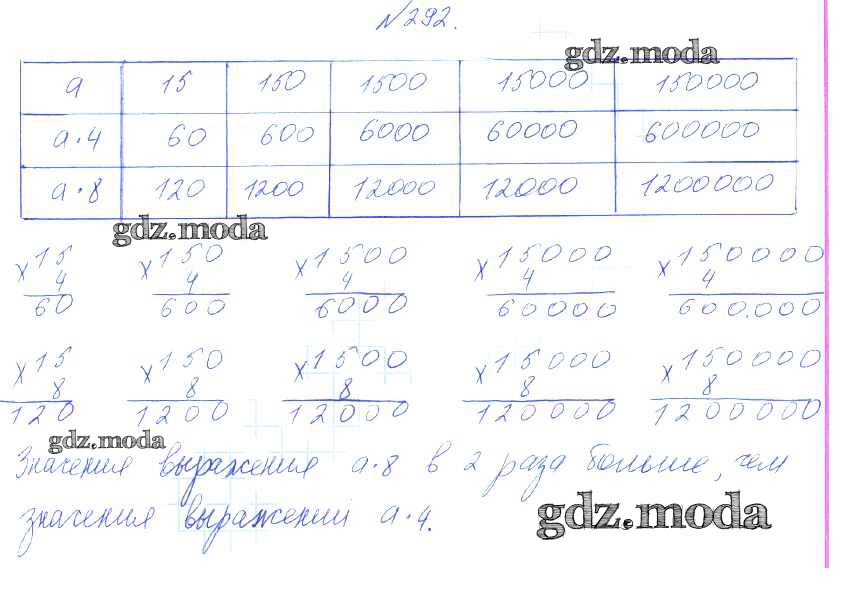 №292.
gdz.moda
a 15 150 1500 15000 150000
a·4 60 600 6000 60000 600000
a·8 120 1200 12000 12000 1200000
gdz.moda
×15 ×150 ×1500 ×15000 ×150000
4 4 4 4 4
60 600 6000 60000 600.000
×15 ×150 ×1500 ×15000 ×150000
8 8 8 8 8
120 1200 12000 120000 1200000
gdz.moda
Значения выражения a·8 в 2 раза больше, чем
значения выражений a·4.
gdz.moda